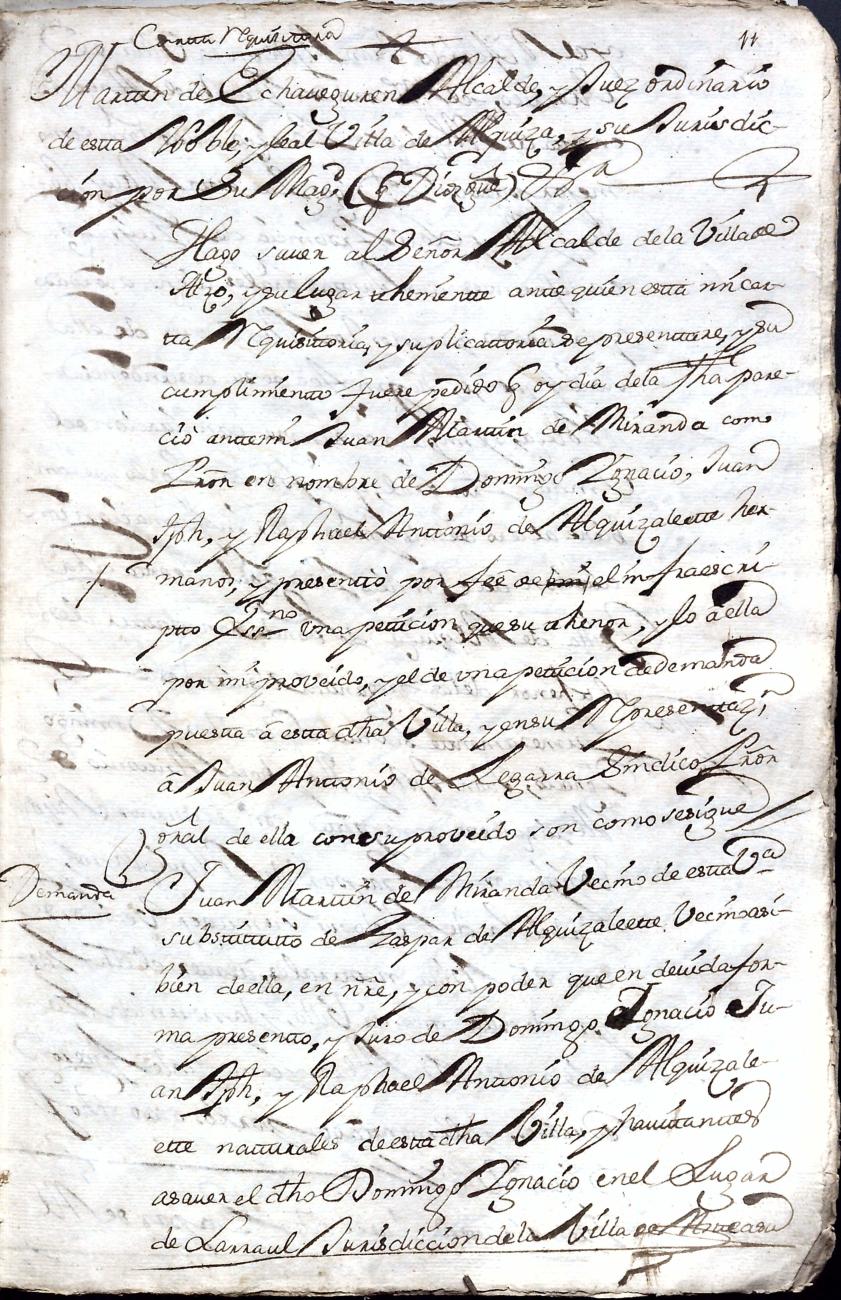 Cartta Rquisitoria
11
Martin de Echaveguren Alcalde, y Juez ordinario
de estta Noble, y leal Villa de Alquiza, y su Jurisdic-
ción por Su Magd. (q Dios gue)
Hago saver al Señor Alcalde dela Villa de
y su lugar thenientte antte quien estta mi car-
tta Rquisittoria, y suplicattoria se presenttare, y su
cumplimientto fuere pedido q oy dia dela fha pare-
ció antte mi Juan Martin de Miranda como
Prõr en nombre de Domingo Ygnacio, Juan
Jph, y Raphael Antonio de Alquizaleette her-
manos, y presenttó por feê de el infraescri-
ptto Essno una petticion que su thenor, y lo â ella
por mi proveido, y el de una petticion de Demanda
puestta â estta dha Villa, y en su Rpresenttazn
â Juan Anttonio de Legarra Síndico Prõr
gñral de ella con su proveido son como se sigue
Demanda
Juan Marttin de Miranda Vecino de estta Va
substtitutto de Gaspar de Alquizaleette Vecino asi-
bien de ella, en nre, y con poder que en devida for-
ma presentto, y Juro de Domingo Ygnacio Ju-
an Jph, y Raphael Anttonio de Alquizale-
ette natturales de estta dha Villa, y havittanttes
asaver el dho Domingo Ygnacio en el Lugar
de Larraul Jurisdiccion de la Villa de